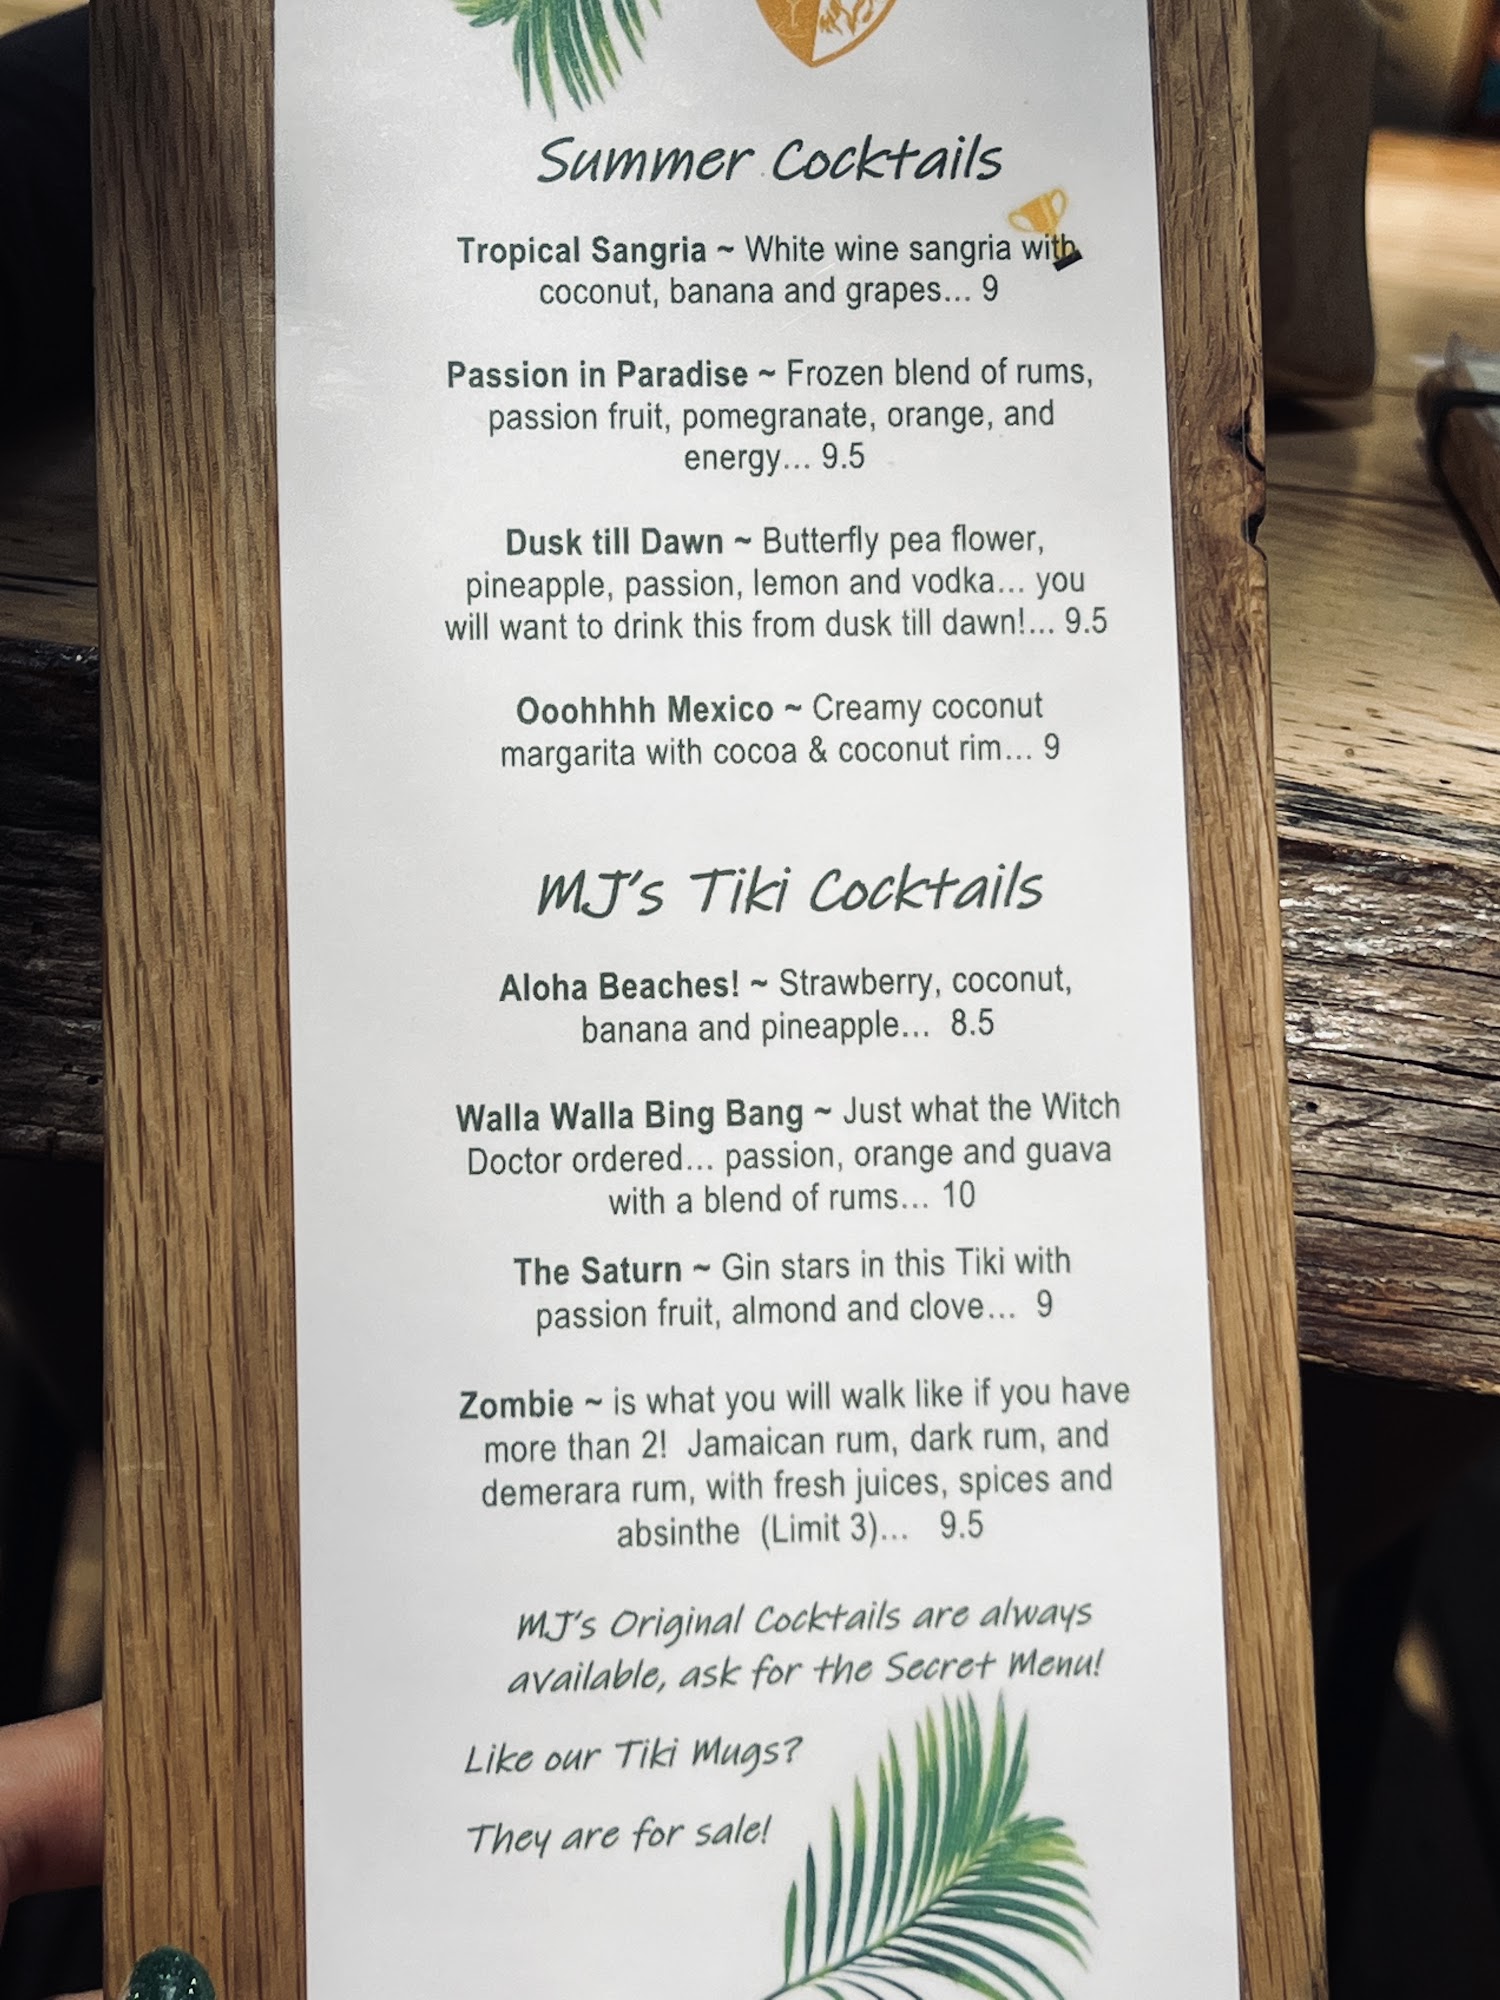 Summer Cocktails
Tropical Sangria ~ White wine sangria with
coconut, banana and grapes... 9
Passion in Paradise ~ Frozen blend of rums,
passion fruit, pomegranate, orange, and
energy... 9.5
Dusk till Dawn ~ Butterfly pea flower,
pineapple, passion, lemon and vodka... you
will want to drink this from dusk till dawn!... 9.5
Ooohhhh Mexico ~ Creamy coconut
margarita with cocoa & coconut rim... 9
MJ's Tiki Cocktails
Aloha Beaches! ~ Strawberry, coconut,
banana and pineapple... 8.5
Walla Walla Bing Bang ~ Just what the Witch
Doctor ordered... passion, orange and guava
with a blend of rums... 10
The Saturn ~ Gin stars in this Tiki with
passion fruit, almond and clove... 9
Zombie ~ is what you will walk like if you have
more than 2! Jamaican rum, dark rum, and
demerara rum, with fresh juices, spices and
absinthe (Limit 3)... 9.5
MJ's Original Cocktails are always
available, ask for the Secret Menu!
Like our Tiki Mugs?
They are for sale!